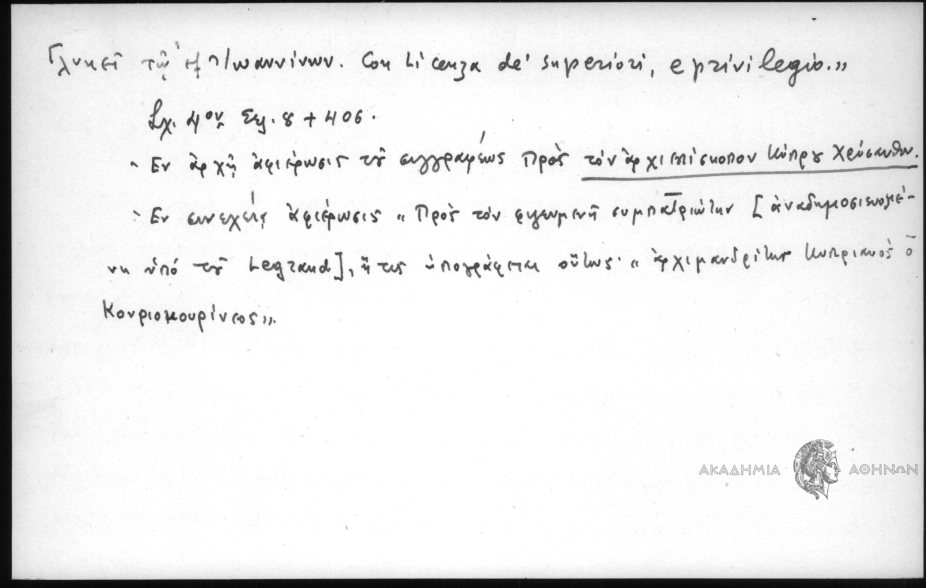 Γλυκεῖ τῷ ἐξ Ἰωαννίνων. Con Licenza de' superiori, e privilegio.»
Σχ. 4ον Σελ. 8 + 406.
- Ἐν ἀρχῇ ἀφιέρωσις τοῦ συγγραφέως πρὸς τὸν ἀρχιεπίσκοπον Κύπρου Χρύσανθον.
- Ἐν συνεχείᾳ ἀφιέρωσις «Πρὸς τὸν φιλευμενῆ συμπατριώτην [ἀναδημοσιευομέ-
νη ὑπὸ τοῦ Legrand], ἥτις ὑπογράφεται οὕτως· «ἀρχιμανδρίτης Κυπριανὸς ὁ
Κουριοκουρίνεος».
ΑΚΑΔΗΜΙΑ ΑΘΗΝΩΝ